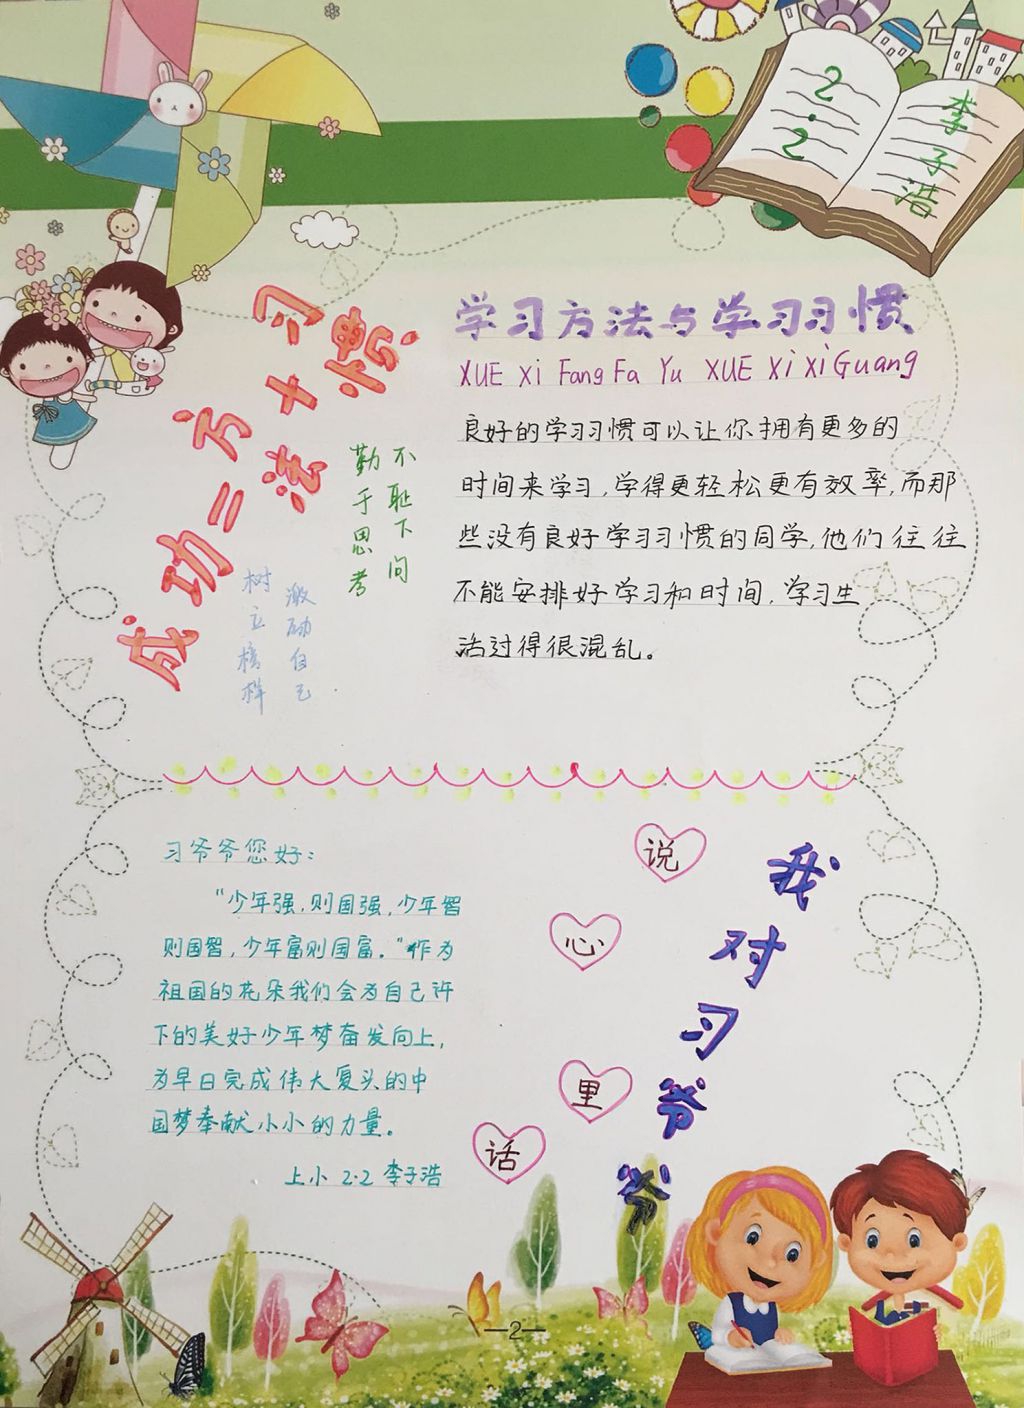 2.2
李子浩
成功=方法+习惯
不耻下问
勤于思考
激励自己
树立榜样
学习方法与学习习惯
XUE Xi Fang Fa Yu XUE Xi Xi Guang
良好的学习习惯可以让你拥有更多的
时间来学习,学得更轻松更有效率,而那
些没有良好学习习惯的同学,他们往往
不能安排好学习和时间,学习生
活过得很混乱。
我对习爷爷
说心里话
习爷爷您好:
“少年强,则国强,少年智
则国智,少年富则国富。”作为
祖国的花朵我们会为自己许
下的美好少年梦奋发向上,
为早日完成伟大复头的中
国梦奉献小小的力量。
上小 2·2 李子浩
—2—